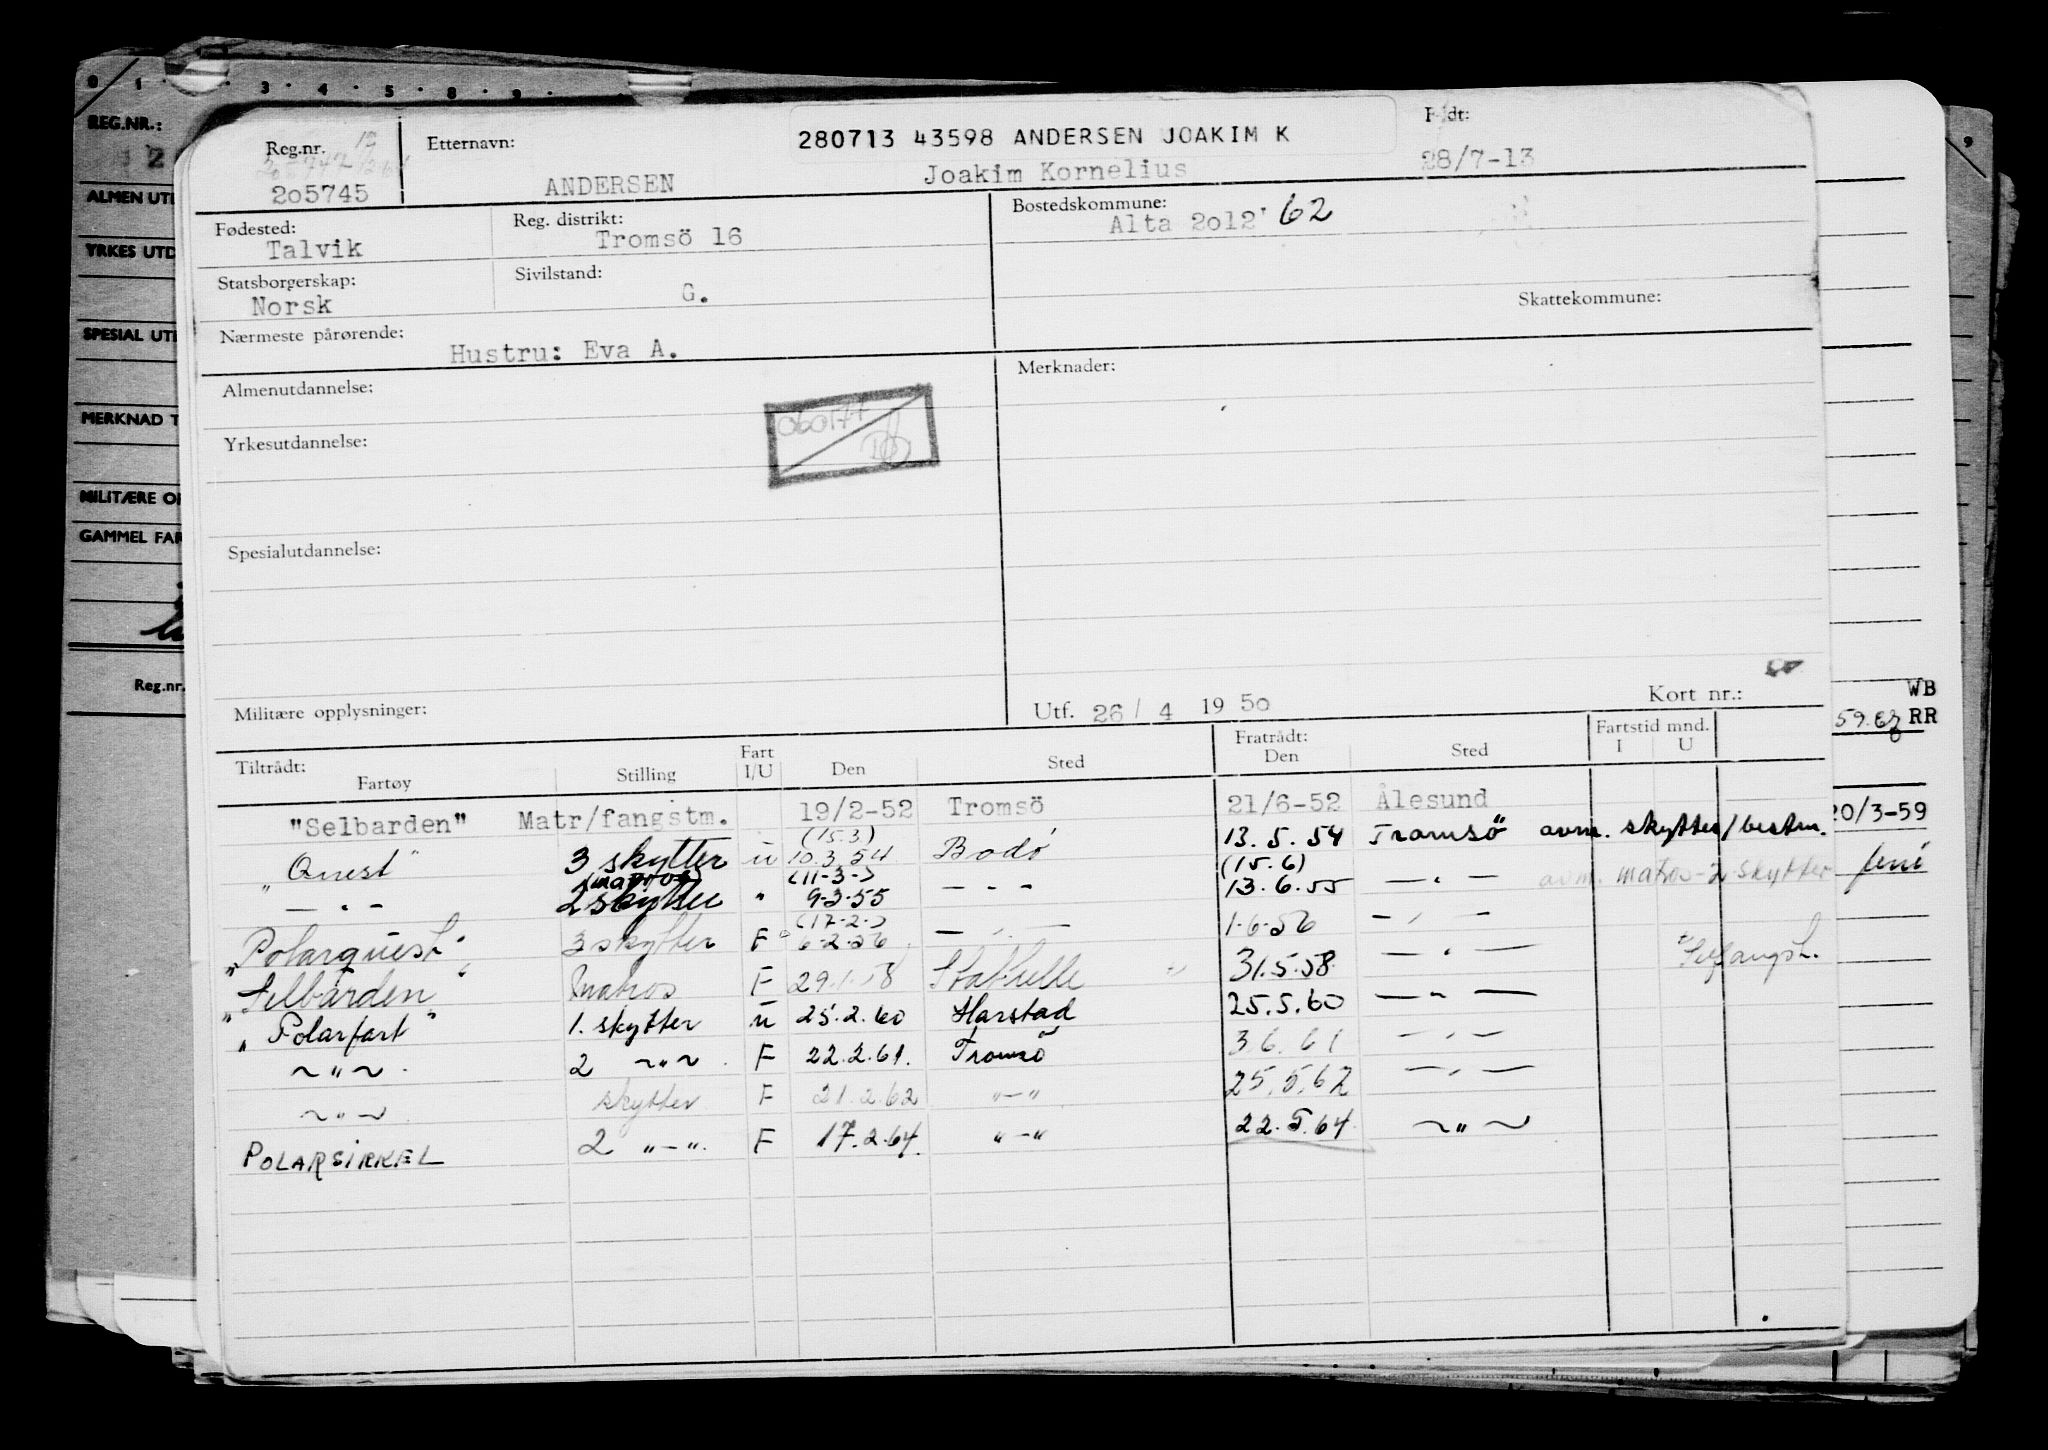 0 1 3 4 5 8 9
REG.NR.:
ALMEN UTD
YRKES UTD
SPESIAL UTD
MERKNAD T
MILITÆRE OP
GAMMEL FAR
Reg.nr.
Reg.nr. 205745
Etternavn: ANDERSEN
280713 43598 ANDERSEN JOAKIM K
Joakim Kornelius
Født: 28/7-13
Fødested: Talvik
Reg. distrikt: Tromsö 16
Bostedskommune: Alta 2012 62
Statsborgerskap: Norsk
Sivilstand: G.
Skattekommune:
Nærmeste pårørende: Hustru: Eva A.
Almenutdannelse:
Merknader:
060177
Yrkesutdannelse:
Spesialutdannelse:
Militære opplysninger:
Utf. 26/ 4 19 50
Kort nr.:
WB
59.62 RR
Tiltrådt: Fartøy Stilling Fart I/U Den Sted Fratrådt: Den Sted Fartstid mnd. I U
"Selbarden" Matr/fangstm. 19/2-52 Tromsö 21/6-52 Ålesund
20/3-59
(15.3)
"Quest" 3 skytter u 10.3.54 Bodö 13.5.54 Tromsö avm. skytter/bestm.
(matros) (11-3-) (15.6)
— " — 2 skytter " 9-3-55 — " — 13.6.55 — " — avm. matros-2 skytter
(17-2-)
"Polarquest" 3 skytter F 6-2-56 — " — 1-6-56 — " —
"Selbarden" Matros F 29.1.58 31.5.58 — " — Selfangst.
"Polarfart" 1. skytter u 25.2.60 Harstad 25.5.60 — " —
~ " ~ 2 ~ " ~ F 22.2.61. Tromsö 3.6.61 — " —
~ " ~ skytter F 21.2.62 " — " 25.5.62 — " —
POLARSIRKEL 2 " — " F 17.2.64. " — " 22.5.64 ~ " ~